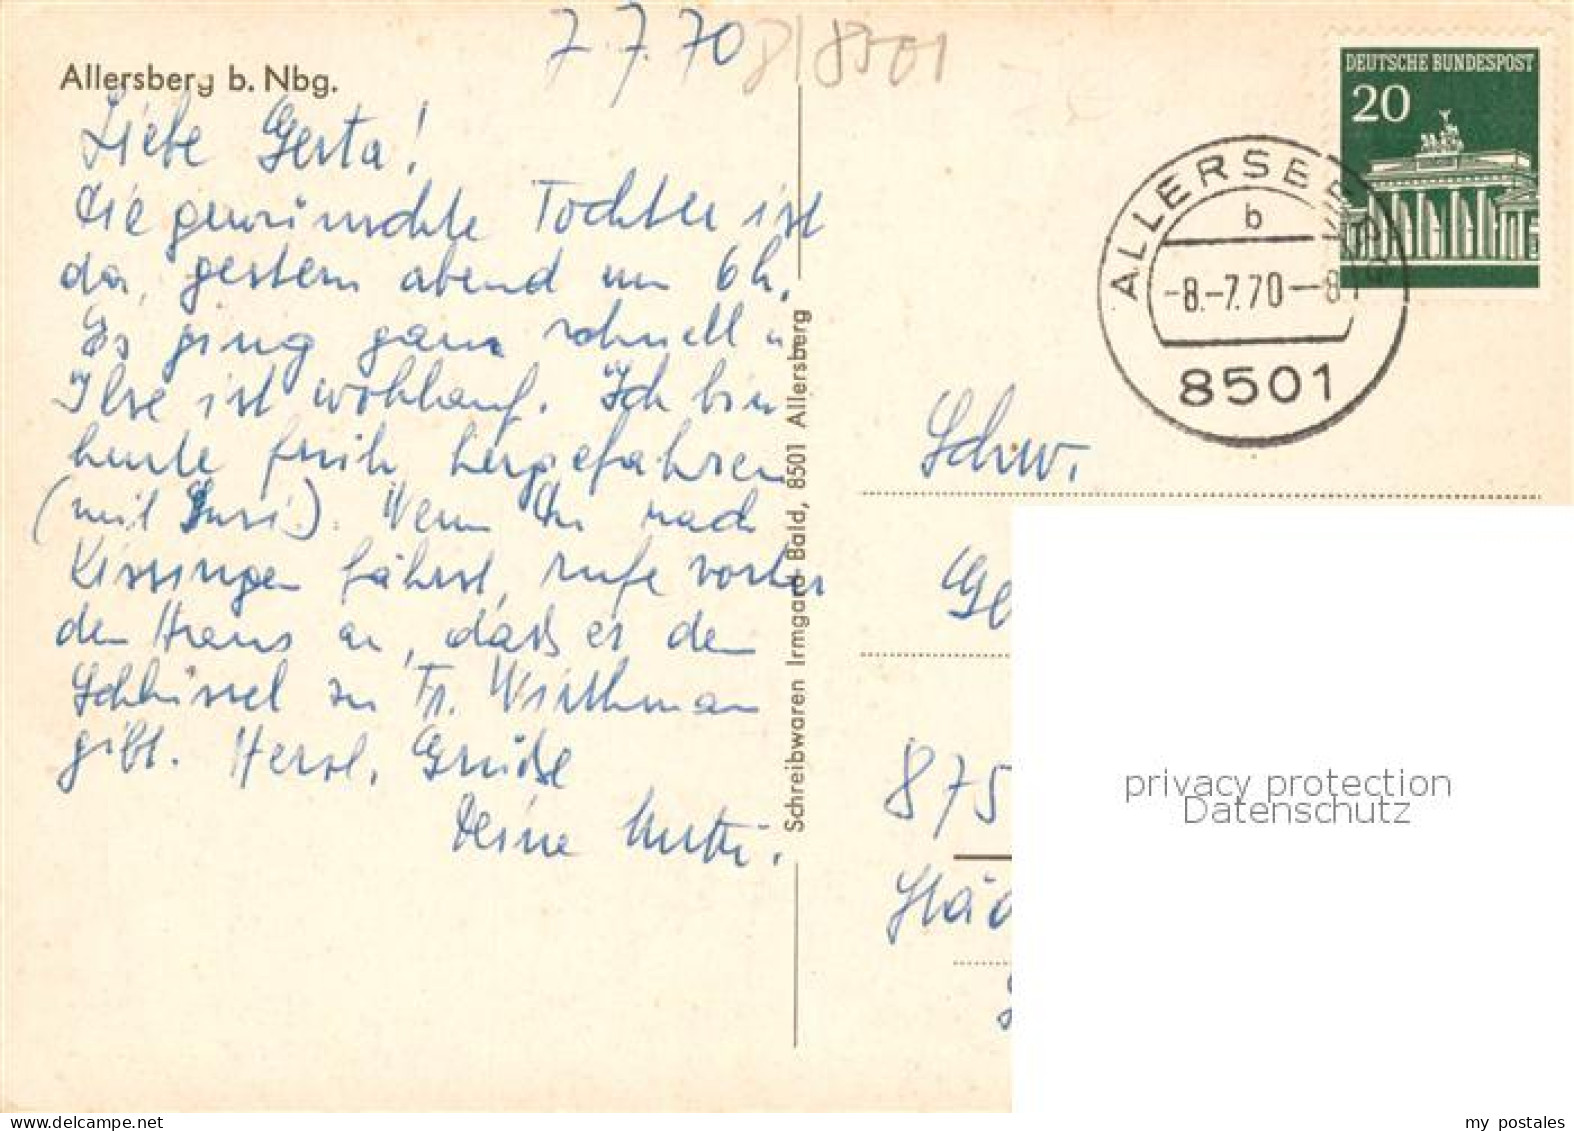 7.7.70
8/8501
Allersberg b. Nbg.
Liebe Gerta!
Die gewünschte Tochter ist
da, gestern abend um 6 h.
Es ging ganz schnell u.
Ilse ist wohlauf. Ich bin
heute früh hergefahren
(mit Susi). Wenn Du nach
Kissingen fährst, rufe vorher
den Hans an, dass er den
Schlüssel zu Fr. Wirthmann
gibt. Herzl. Grüße
Deine Mutti.
Schreibwaren Irmgard Bald, 8501 Allersberg
DEUTSCHE BUNDESPOST
20
ALLERSBERG
b
-8.-7.70--8
8501
Schw.
Ge
875
privacy protection
Datenschutz
my postales
www.delcampe.net